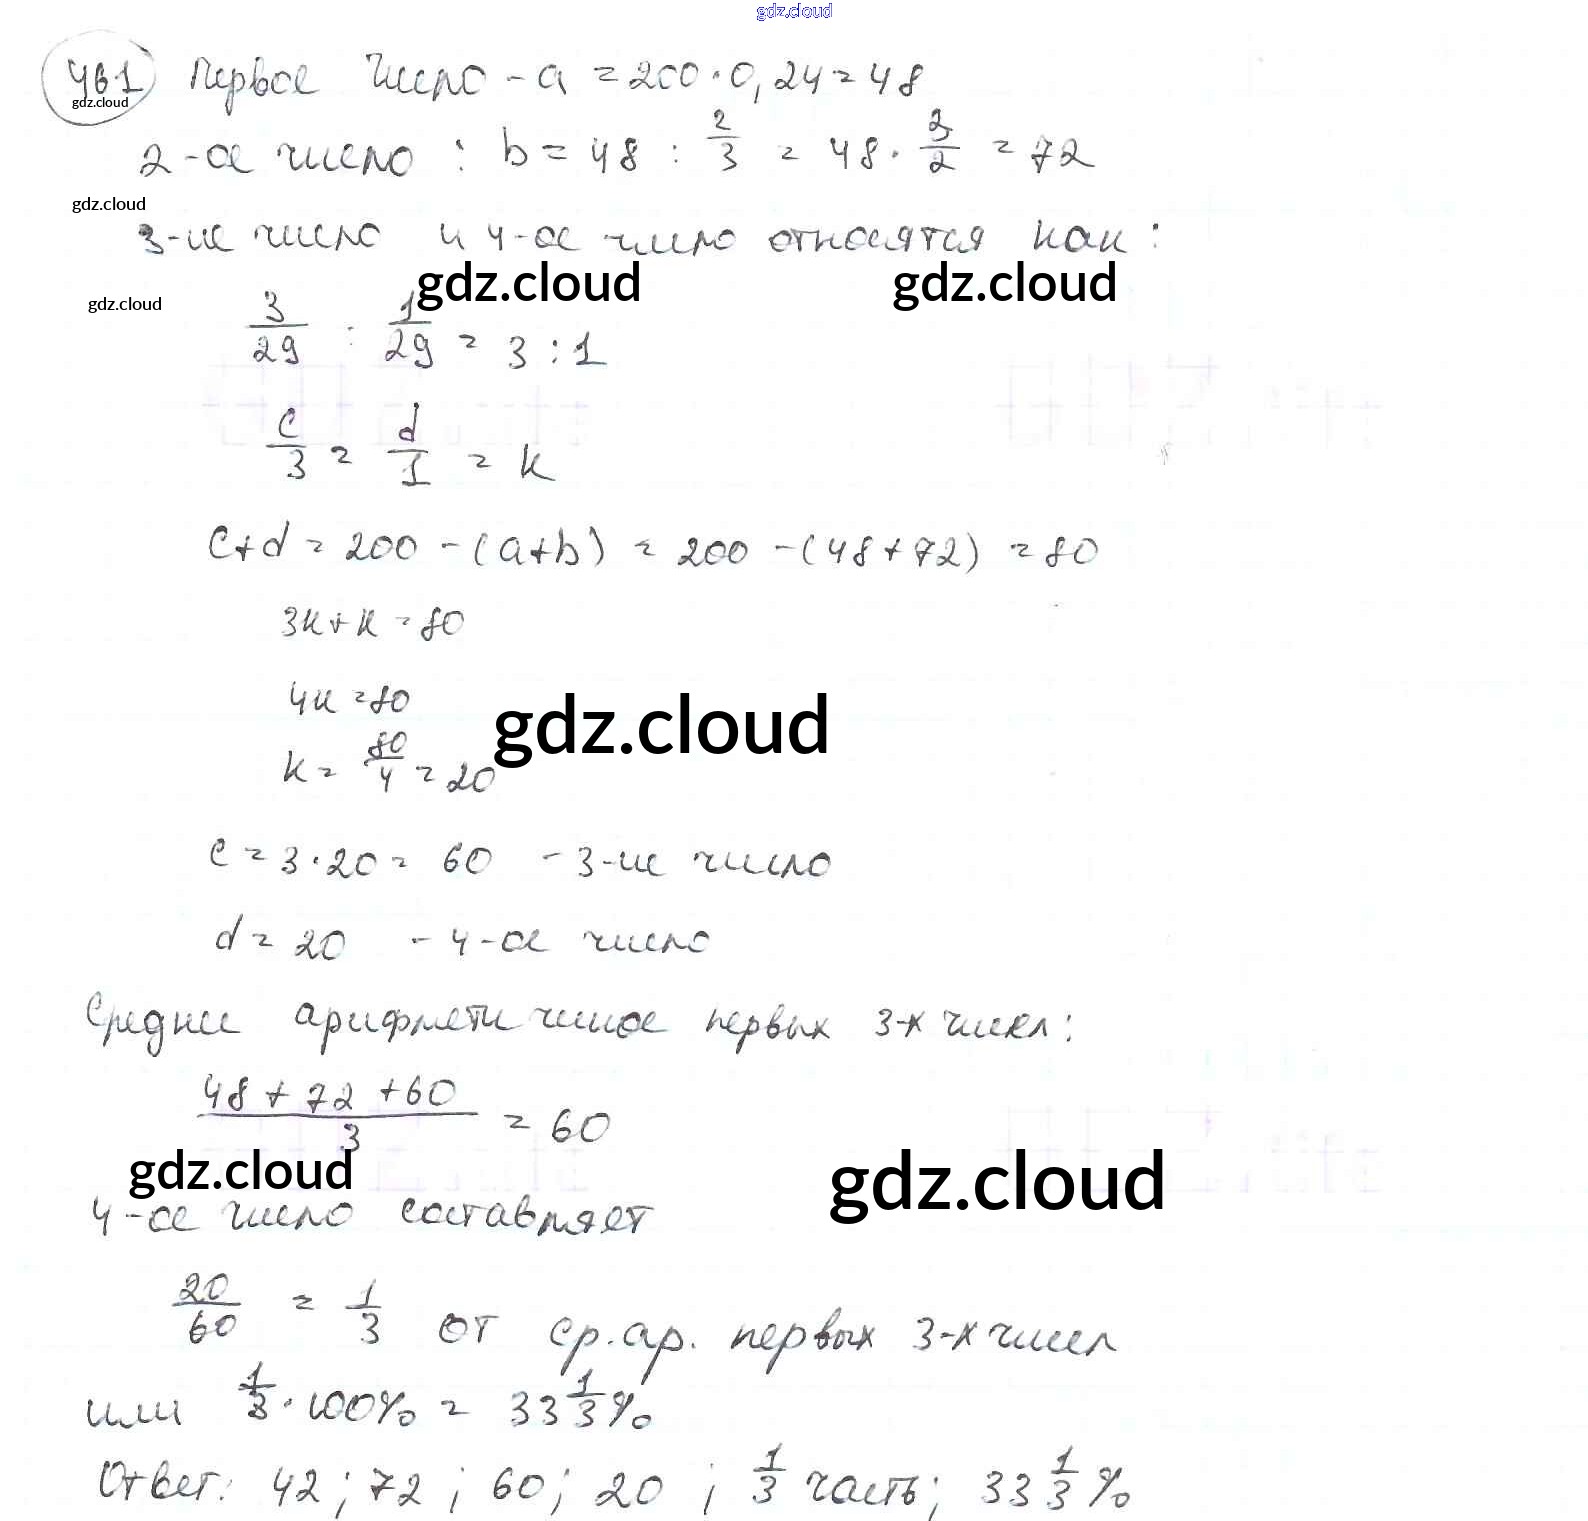 gdz.cloud
461 Первое число - a = 200 · 0,24 = 48
gdz.cloud
2-ое число : b = 48 : 2/3 = 48 · 3/2 = 72
gdz.cloud
3-ие число и 4-ое число относятся как :
gdz.cloud gdz.cloud
gdz.cloud
3/29 : 1/29 = 3 : 1
c/3 = d/1 = k
c+d = 200 - (a+b) = 200 - (48 + 72) = 80
3k + k = 80
4k = 80
gdz.cloud
k = 80/4 = 20
c = 3 · 20 = 60 - 3-ие число
d = 20 - 4-ое число
Среднее арифметическое первых 3-х чисел :
(48 + 72 + 60)/3 = 60
gdz.cloud gdz.cloud
4-ое число составляет
20/60 = 1/3 от ср. ар. первых 3-х чисел
или 1/3 · 100% = 33 1/3 %
Ответ : 42 ; 72 ; 60 ; 20 ; 1/3 часть ; 33 1/3 %